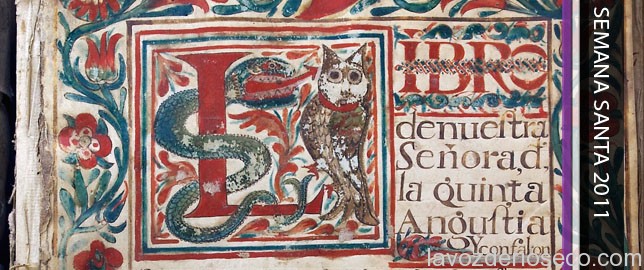 LIBRO
de nuestra
Señora, d.
la quinta
Angustia
y confalon
SEMANA SANTA 2011
lavozderioseco.com